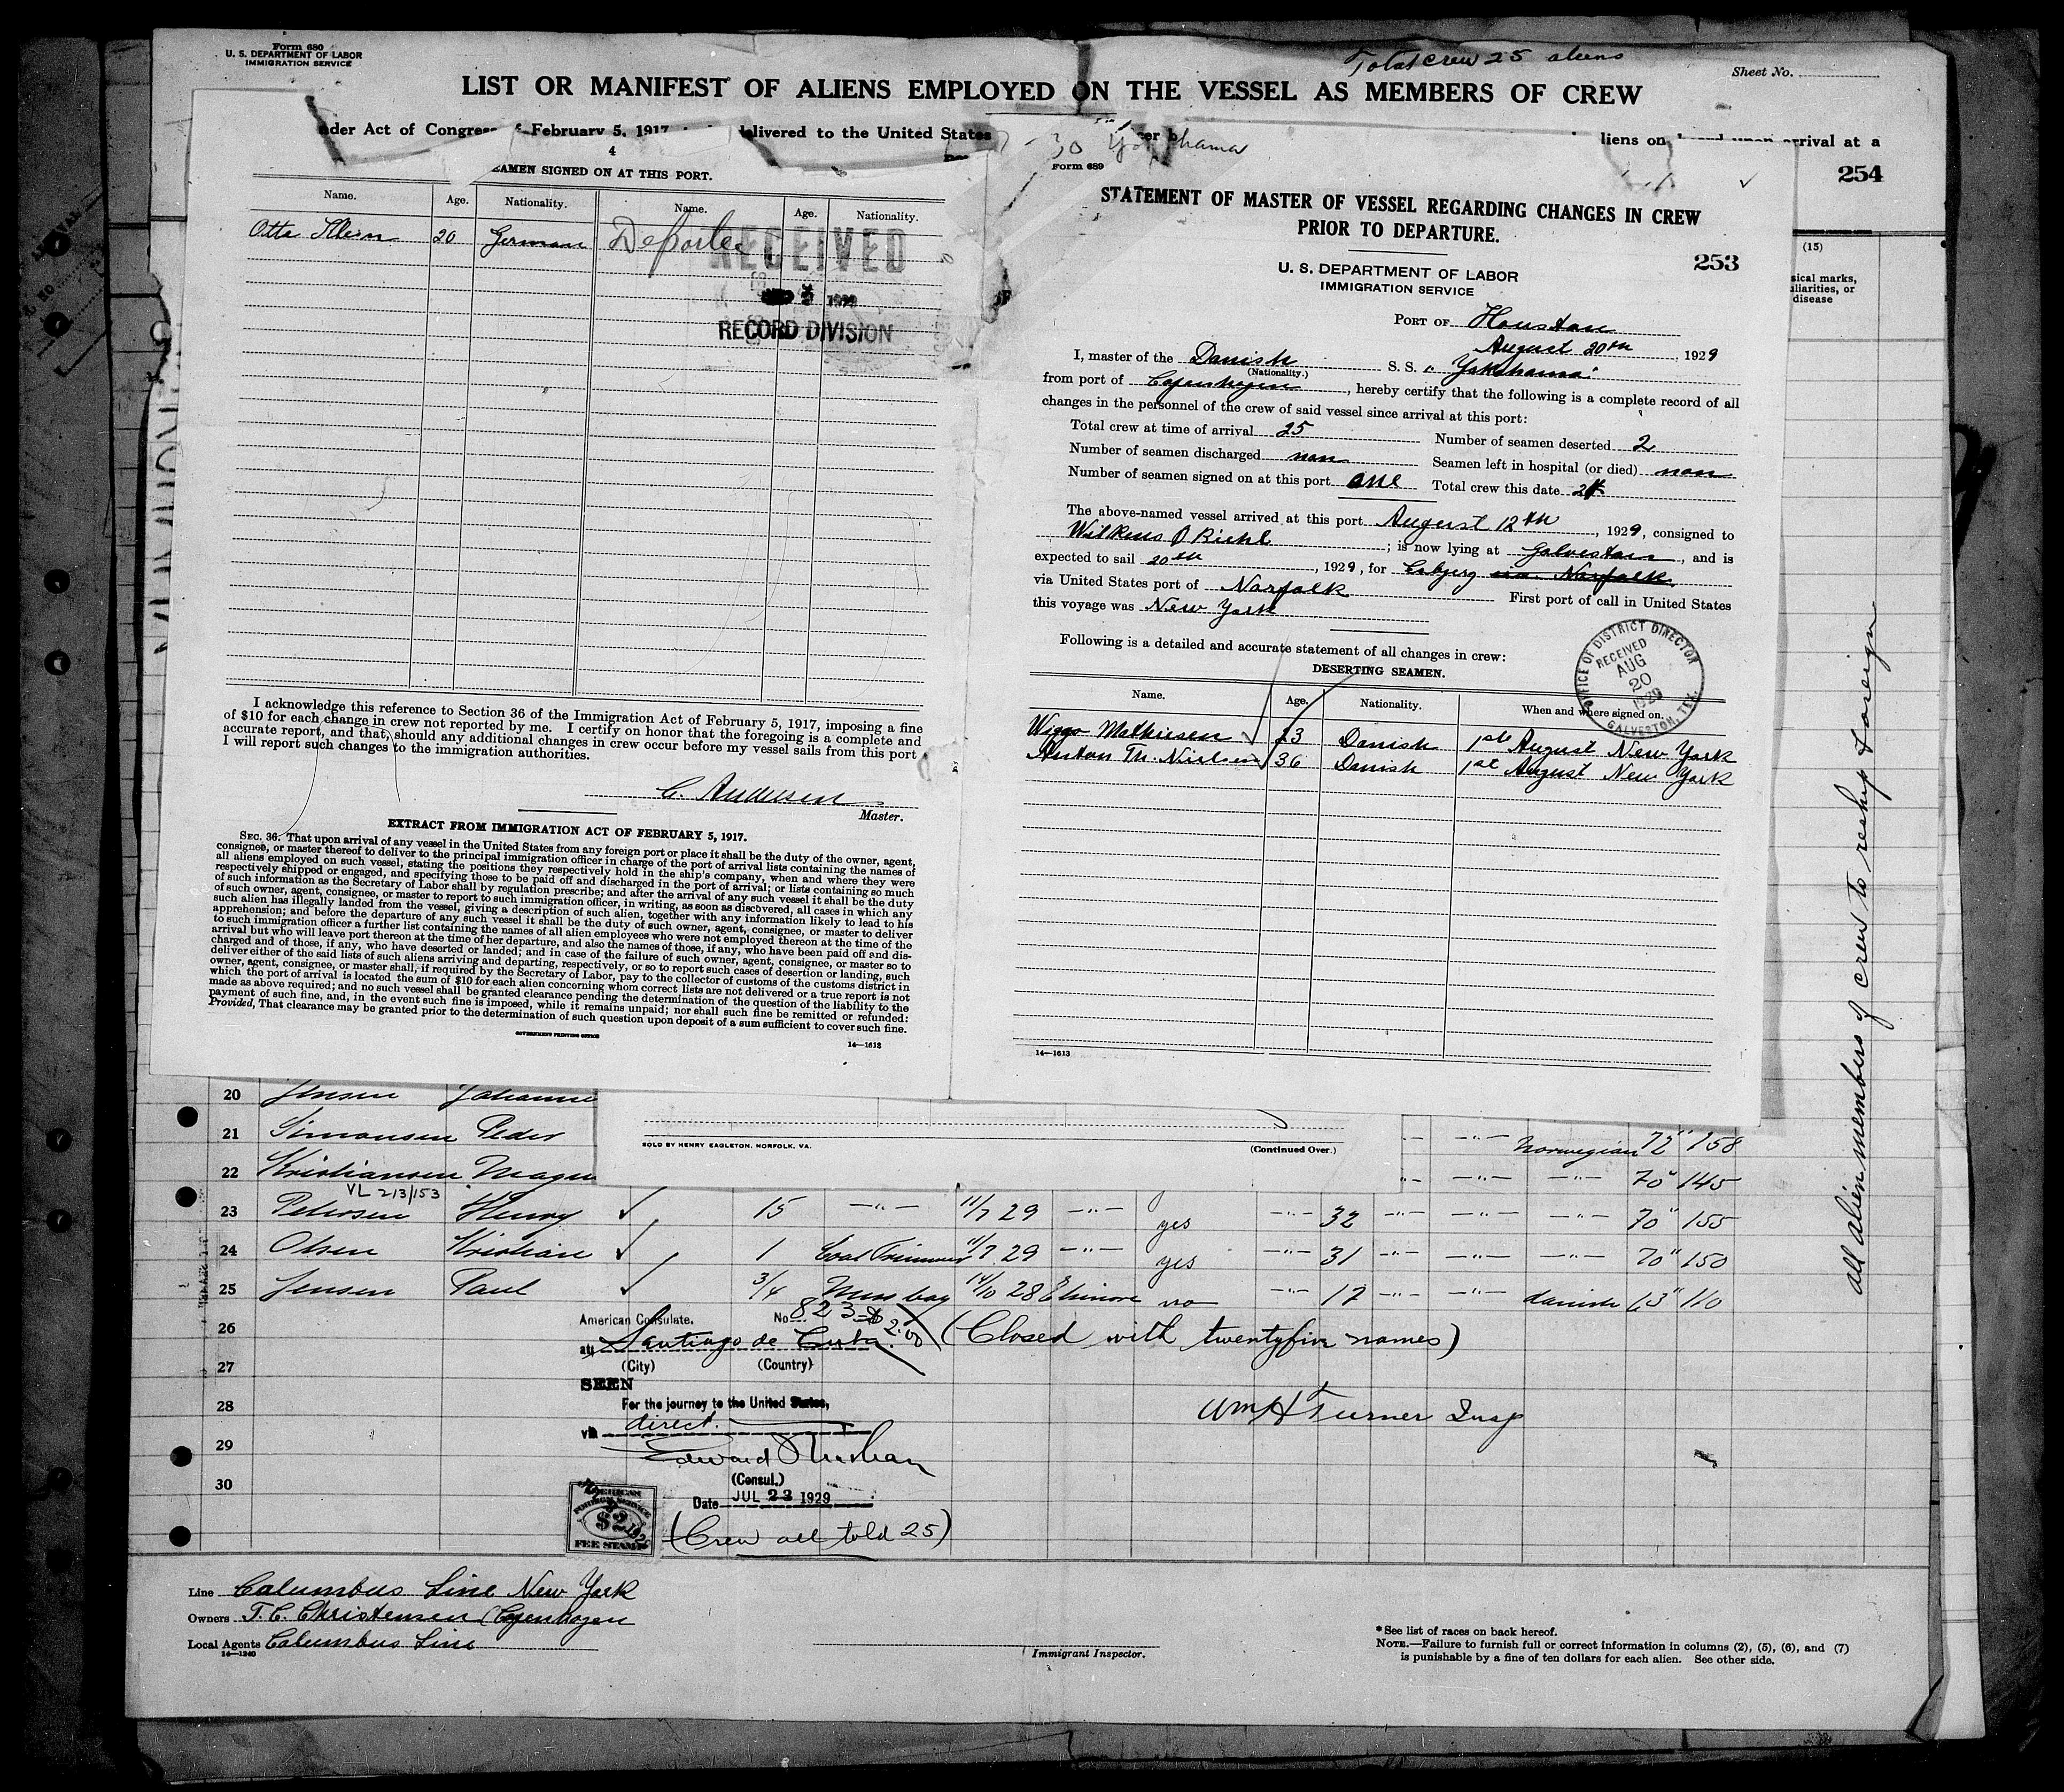 Form 680
U. S. DEPARTMENT OF LABOR
IMMIGRATION SERVICE
Total crew 25 aliens
Sheet No.
LIST OR MANIFEST OF ALIENS EMPLOYED ON THE VESSEL AS MEMBERS OF CREW
nder Act of Congress February 5, 1917 delivered to the United States
liens on board upon arrival at a
254
(15)
sical marks,
uliarities, or
disease
4
SEAMEN SIGNED ON AT THIS PORT.
Name. Age. Nationality. Name. Age. Nationality.
Otto Klein 20 German Deportee
RECEIVED
1929
RECORD DIVISION
I acknowledge this reference to Section 36 of the Immigration Act of February 5, 1917, imposing a fine
of $10 for each change in crew not reported by me. I certify on honor that the foregoing is a complete and
accurate report, and that, should any additional changes in crew occur before my vessel sails from this port
I will report such changes to the immigration authorities.
C. Andersen
Master.
EXTRACT FROM IMMIGRATION ACT OF FEBRUARY 5, 1917.
SEC. 36. That upon arrival of any vessel in the United States from any foreign port or place it shall be the duty of the owner, agent,
consignee, or master thereof to deliver to the principal immigration officer in charge of the port of arrival lists containing the names of
all aliens employed on such vessel, stating the positions they respectively hold in the ship's company, when and where they were
respectively shipped or engaged, and specifying those to be paid off and discharged in the port of arrival; or lists containing so much
of such information as the Secretary of Labor shall by regulation prescribe; and after the arrival of any such vessel it shall be the duty
of such owner, agent, consignee, or master to report to such immigration officer, in writing, as soon as discovered, all cases in which any
such alien has illegally landed from the vessel, giving a description of such alien, together with any information likely to lead to his
apprehension; and before the departure of any such vessel it shall be the duty of such owner, agent, consignee, or master to deliver
to such immigration officer a further list containing the names of all alien employees who were not employed thereon at the time of the
arrival but who will leave port thereon at the time of her departure, and also the names of those, if any, who have been paid off and dis-
charged and of those, if any, who have deserted or landed; and in case of the failure of such owner, agent, consignee, or master so to
deliver either of the said lists of such aliens arriving and departing, respectively, or so to report such cases of desertion or landing, such
owner, agent, consignee, or master shall, if required by the Secretary of Labor, pay to the collector of customs of the customs district in
which the port of arrival is located the sum of $10 for each alien concerning whom correct lists are not delivered or a true report is not
made as above required; and no such vessel shall be granted clearance pending the determination of the question of the liability to the
payment of such fine, and, in the event such fine is imposed, while it remains unpaid; nor shall such fine be remitted or refunded:
Provided, That clearance may be granted prior to the determination of such question upon deposit of a sum sufficient to cover such fine.
GOVERNMENT PRINTING OFFICE
14—1613
30 Yokohama
Form 689
STATEMENT OF MASTER OF VESSEL REGARDING CHANGES IN CREW
PRIOR TO DEPARTURE.
253
U. S. DEPARTMENT OF LABOR
IMMIGRATION SERVICE
PORT OF Houston
August 20th, 1929
I, master of the Danish S. S. "Yokohama"
(Nationality.)
from port of Copenhagen, hereby certify that the following is a complete record of all
changes in the personnel of the crew of said vessel since arrival at this port:
Total crew at time of arrival 25 Number of seamen deserted 2
Number of seamen discharged non Seamen left in hospital (or died) non
Number of seamen signed on at this port one Total crew this date 24
The above-named vessel arrived at this port August 12th, 1929, consigned to
Wilkens & Biehl; is now lying at Galveston, and is
expected to sail 20th, 1929, for Esbjerg via Norfolk
via United States port of Norfolk First port of call in United States
this voyage was New York
Following is a detailed and accurate statement of all changes in crew:
DESERTING SEAMEN.
OFFICE OF DISTRICT DIRECTOR
RECEIVED
AUG
20
1929
GALVESTON, TEX.
Name. Age. Nationality. When and where signed on.
Wiggo Mathiesen 23 Danish 1st August New York
Anton M. Nielsen 36 Danish 1st August New York
14—1613
all alien members of crew to reship foreign
20 Jensen Johanne
21 Simonsen Peder Norwegian 72" 158
22 Kristiansen Magnu 70" 145
VL 213/153
23 Petersen Henry 15 11/7 29 yes 32 70" 155
24 Olsen Kristian 1 Coal Trimmer 11/7 29 yes 31 70" 150
25 Jensen Paul 3/4 Mess boy 14/10 28 Elsinore no 17 danish 63" 110
26
27
28
29
30
SOLD BY HENRY EAGLETON, NORFOLK, VA.
(Continued Over.)
American Consulate. No. 823 $2.00
at Santiago de Cuba.
(City) (Country)
(Closed with twentyfive names)
SEEN
For the journey to the United States,
via direct.
(Consul.)
Date JUL 23 1929
Wm H Turner Insp
AMERICAN
FOREIGN SERVICE
$2
FEE STAMP
(Crew all told 25)
Line Columbus Line New York
Owners T. C. Christensen Copenhagen
Local Agents Columbus Line
14—1240
Immigrant Inspector.
*See list of races on back hereof.
NOTE.—Failure to furnish full or correct information in columns (2), (5), (6), and (7)
is punishable by a fine of ten dollars for each alien. See other side.